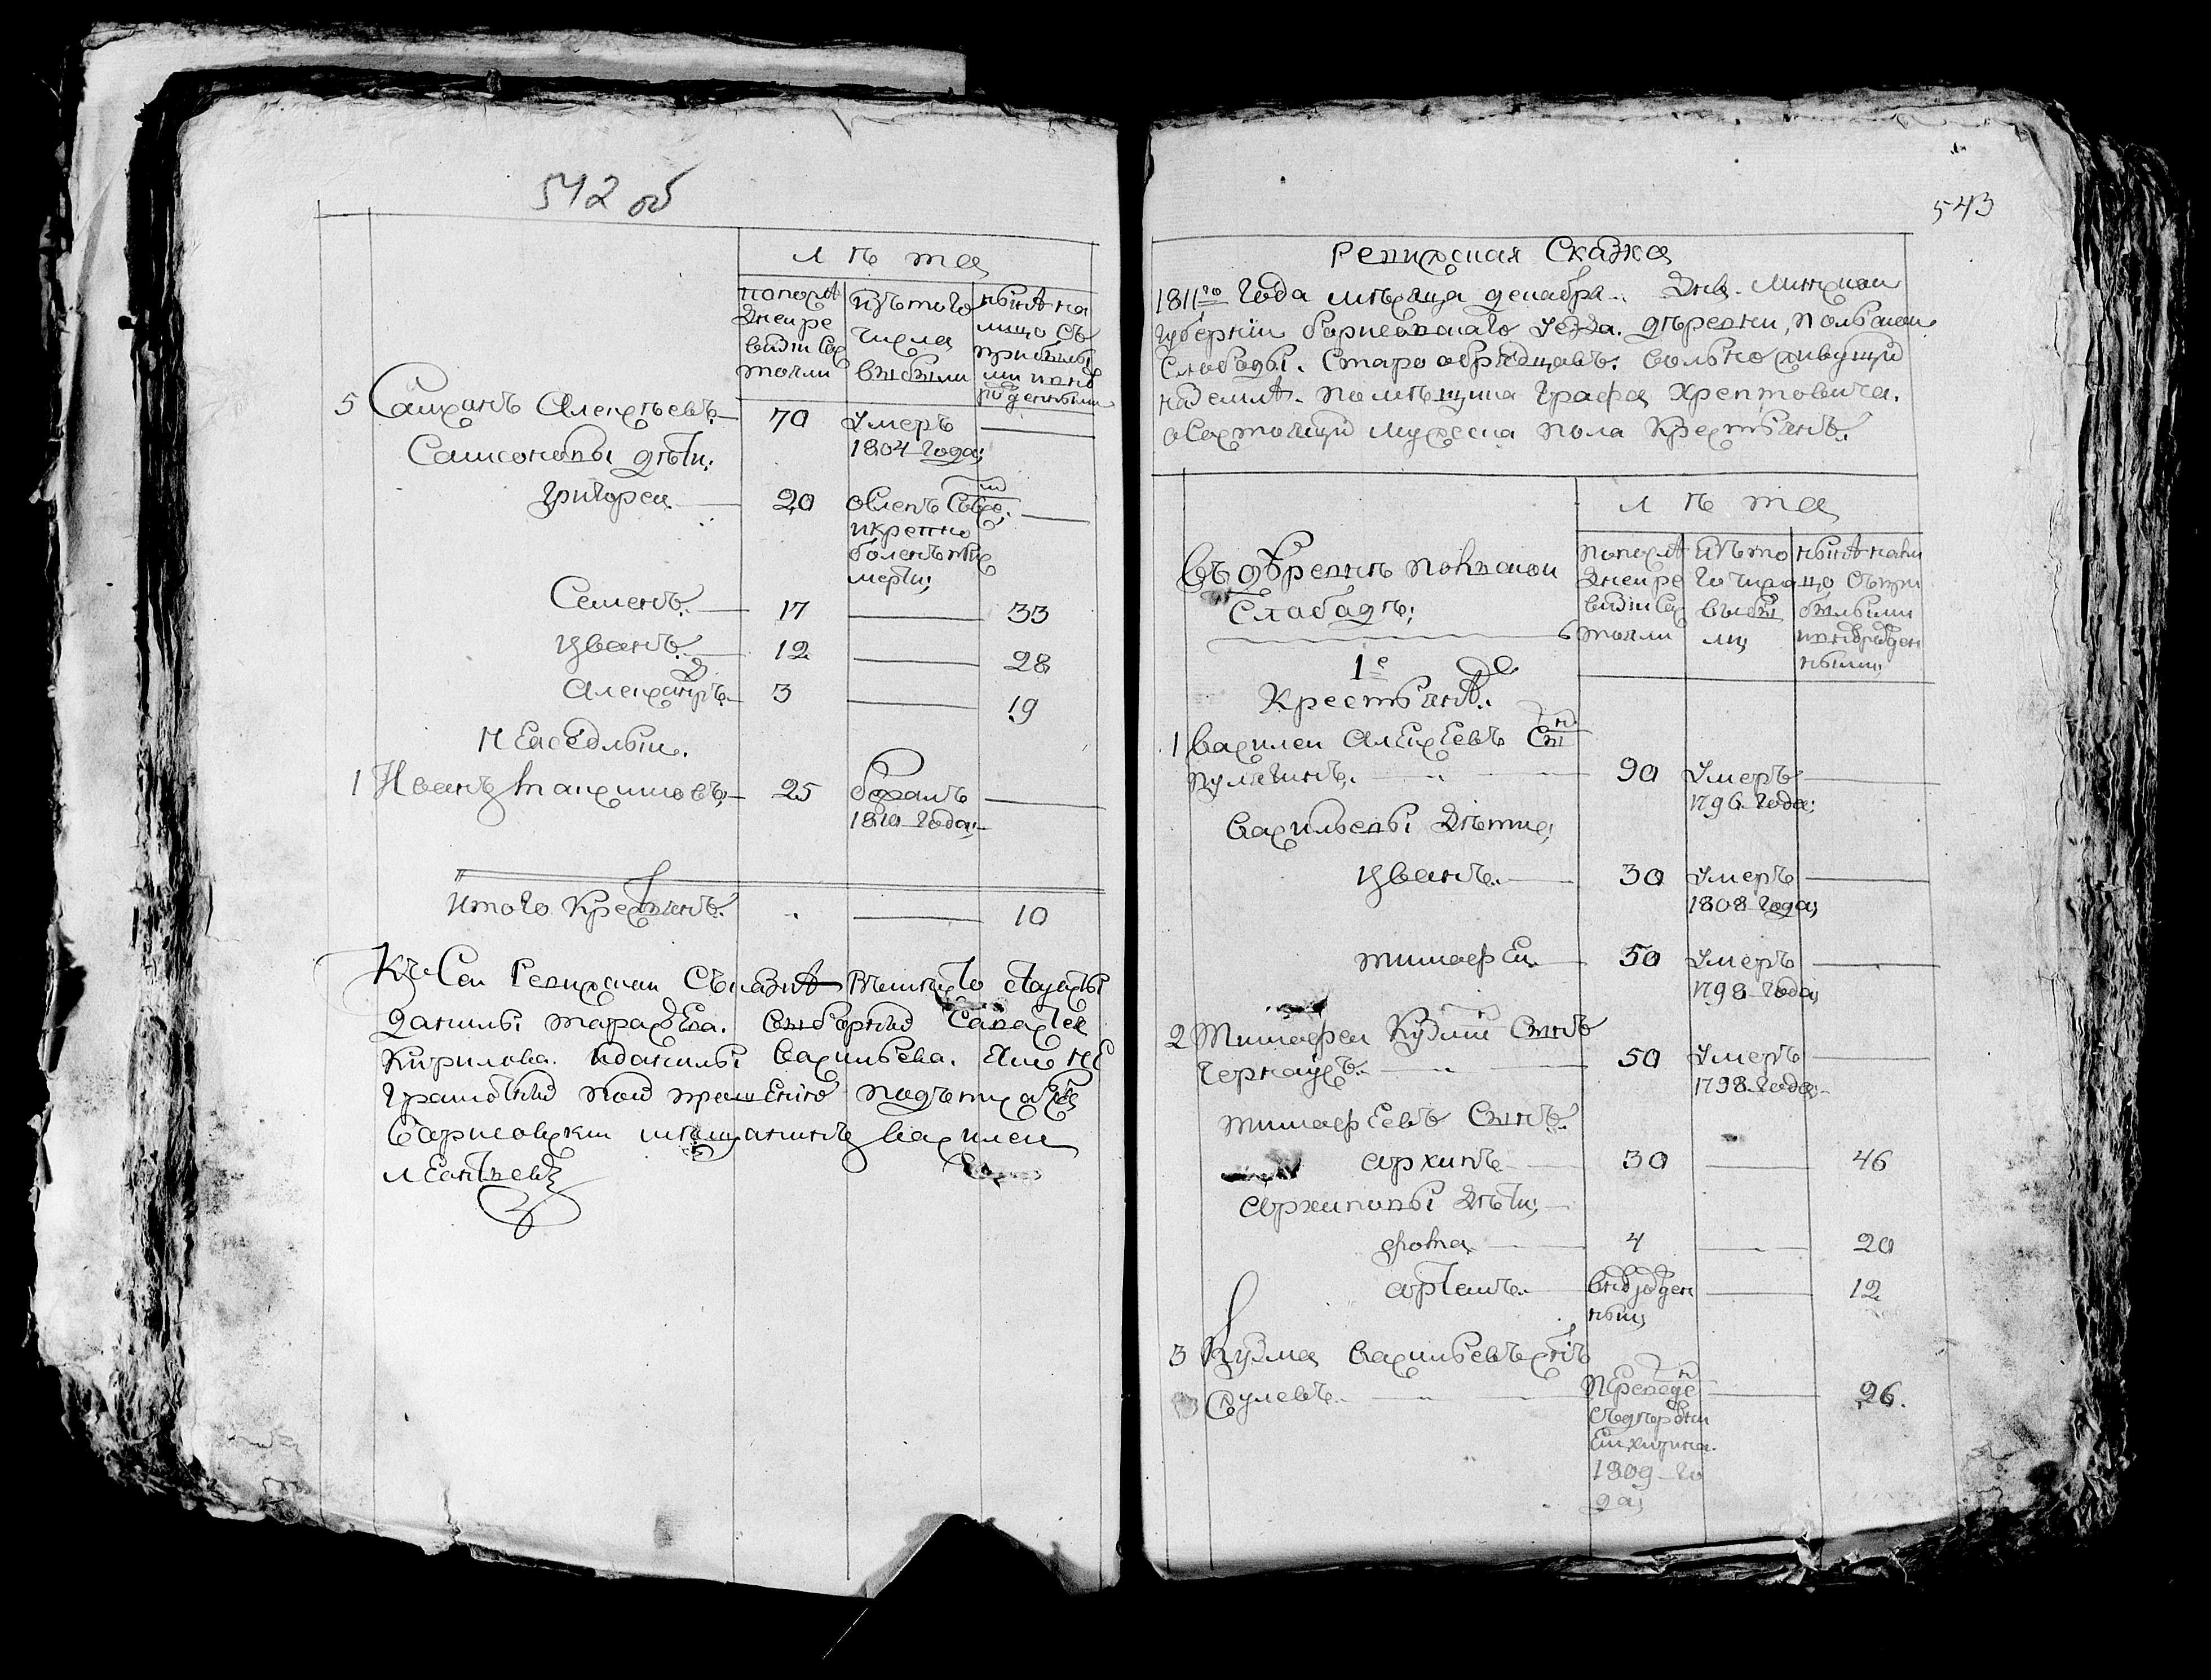 542 об
Лѣта
попосл
Знеи ре
визи сос
тояли
изътого
числа
выбыли
нынѣ на
лицо съ
прибылы
ми и внов
рожденными
5 Самсонъ Алексѣевъ 70 Умеръ
1804 года;
Самсоновы дѣти;
Григореи 20 Ослепъ
икрепко
боленъ
Семенъ 17 33
Иванъ 12 28
Александръ 3 19
1 Иванъ 25 бежалъ
1810 года;
Итого Крестьянъ 10
Къ Сеи Ревизскои Съказкѣ Вместо старосты
Данилы Тараѕева. выборныхъ Савастея
Кирилова. иданилы Васильева. Яко не
грамотныхъ поихъ прошению подътисался
Борисовскии мещанинъ Василеи
Леонтьевъ
543
Ревизская Сказка
1811го Года мѣсяца декабря Дня. Минскои
Губернии Борисовскаго Уезда. дѣревни, Польскои
Слободы. Старообрядцавъ. вольно живущихъ
наземлѣ. помѣщика Графа Хрептовича.
о Состоящихъ мужеска пола Крестьянъ.
Лѣта
попослѣ
Знеи ре
визи сос
тояли
изъто
го числа
выбы
ли
нынѣ нали
цо съпри
былыми
ивновьрожден
ными
Въ дѣревнѣ Польскои
Слабадѣ;
1е
Крестьянѣ
1 Василеи Алексеевъ Сынъ
Пулягинъ. 90 Умеръ
1796. года;
Васильевы Дѣти;
Иванъ 30 Умеръ
1808 года;
Тимофеи 50 Умеръ
1798 года;
2 Тимофеи Кузминъ Сынъ
Чернаусъ. 50 Умеръ
1798. года;
Тимофеевъ Сынъ.
Архипъ 30 46
Архиповы Дѣти;
Фома 4 20
Артемъ вновьрожден
ныи 12
3 Кузма Васильевъ снъ
Сулевъ. Переведе
сѣдѣревни
1809 го
да; 26.